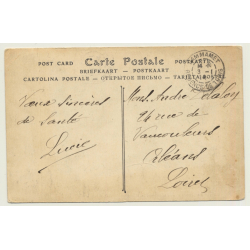 POST CARD Carte Postale POSTKARTE
BRIEFKAART — POSTKAART
CARTOLINA POSTALE — ОТКРЫТОЕ ПИСЬМО — TARJETA
Voeux sincères
de santé
Lucie
Mons. André
rue de
Vaucouleurs
Orléans
Loiret